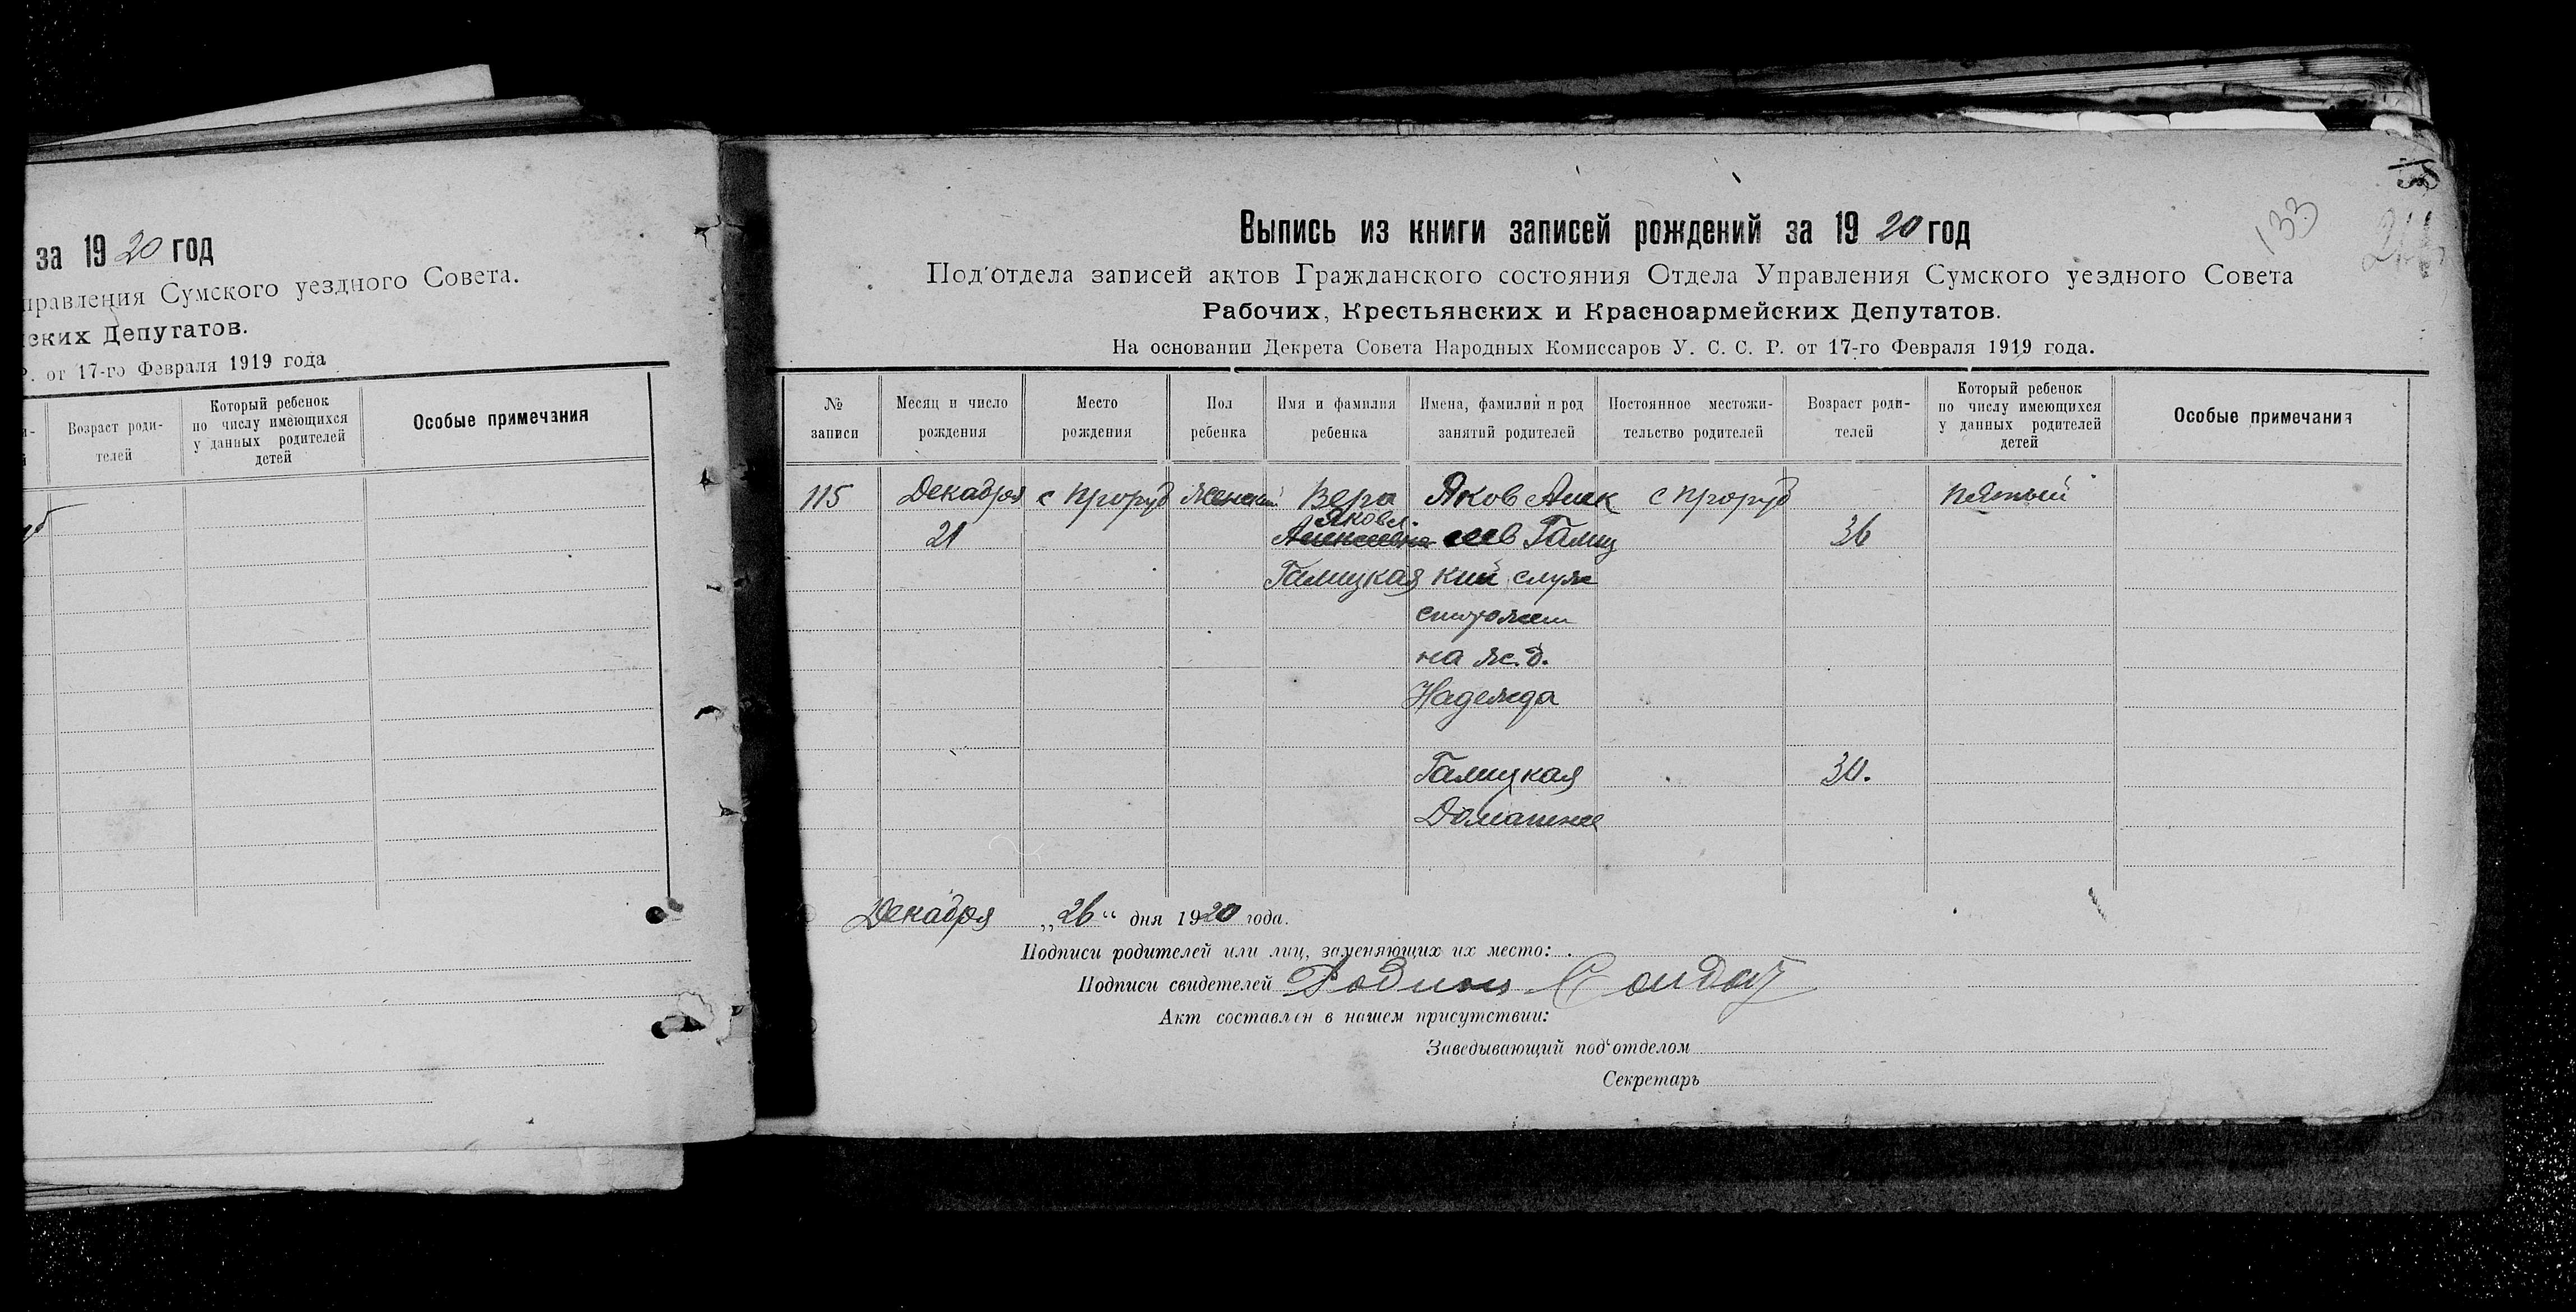 за 1920 год
правления Сумского уездного Совета.
ских Депутатов.
Р. от 17-го Февраля 1919 года
Возраст роди-
телей
Который ребенок
по числу имеющихся
у данных родителей
детей
Особые примечания
133
Выпись из книги записей рождений за 1920 год
Под'отдела записей актов Гражданского состояния Отдела Управления Сумского уездного Совета
Рабочих, Крестьянских и Красноармейских Депутатов.
На основании Декрета Совета Народных Комиссаров У. С. С. Р. от 17-го Февраля 1919 года.
№
записи
Месяц и число
рождения
Место
рождения
Пол
ребенка
Имя и фамилия
ребенка
Имена, фамилии и род
занятий родителей
Постоянное местожи-
тельство родителей
Возраст роди-
телей
Который ребенок
по числу имеющихся
у данных родителей
детей
Особые примечания
115 Декабря с Проруб Женский Вера Яков Алек с Проруб пятый
Яковл.
21 Алексеевна сеев Галиц 36
Галицкая кий служ
на ж.д.
Надежда
Галицкая 30.
Домашнее
Декабря „26“ дня 1920 года.
Подписи родителей или лиц, заменяющих их место:
Подписи свидетелей Родион Солдат
Акт составлен в нашем присутствии:
Заведывающий под'отделом
Секретарь